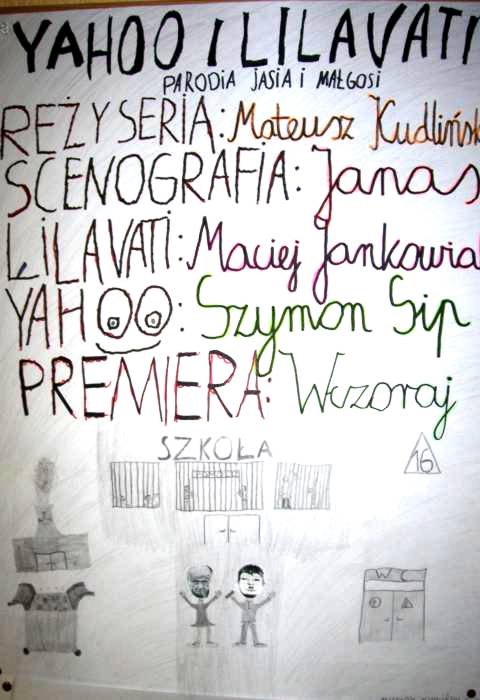 YAHOO I LILAVATI
PARODIA JASIA I MAŁGOSI
REŻYSERIA: Mateusz Kudlińsk
SCENOGRAFIA: Janas
LILAVATI: Maciej Jankowia
YAHOO: Szymon Sip
PREMIERA: Wczoraj
SZKOŁA
16
WC